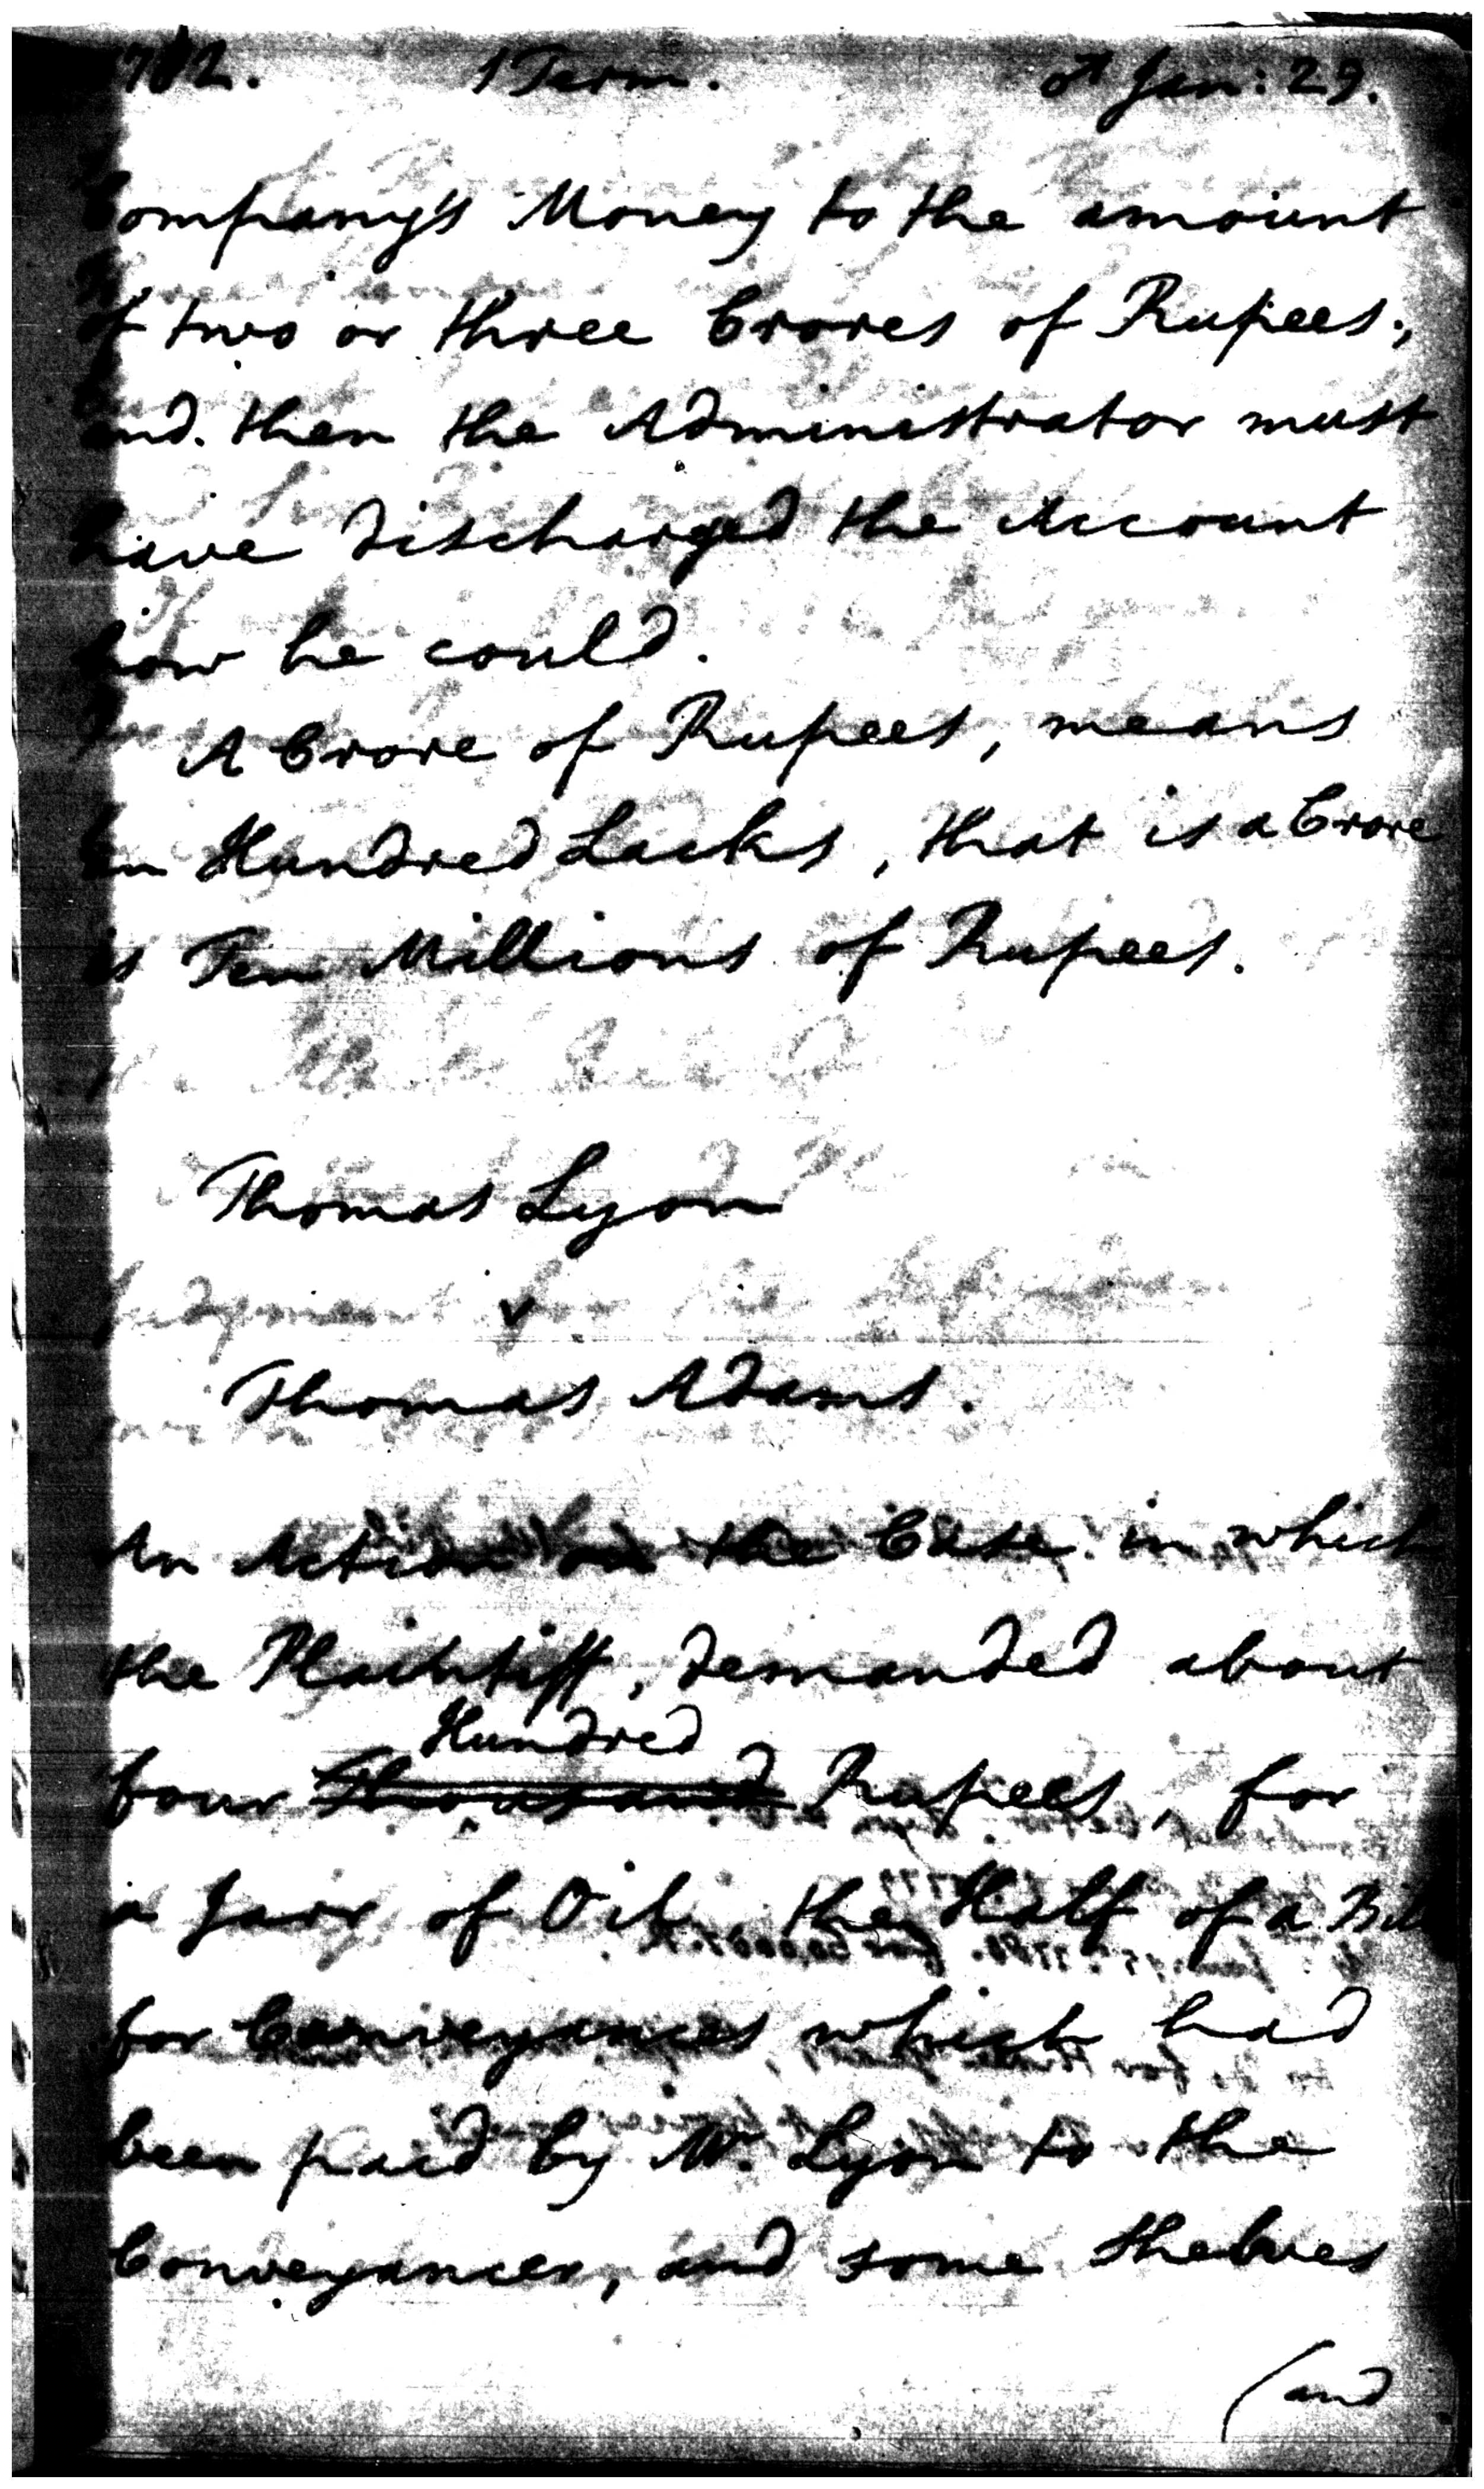 1782. 1 Term. ♂ Jan: 29.
Company's Money to the amount
of two or three Crores of Rupees;
and then the Administrator must
have discharged the Account
how he could.
A Crore of Rupees, means
an Hundred Lacks, that is a Crore
is Ten Millions of Rupees.
Thomas Lyon
v
Thomas Adams.
An Action on the Case in which
the Plaintiff, demanded about
Hundred
four Thousand Rupees, for
a Jarr of Oil, the Half of a Bill
for Conveyances which had
been paid by Mr. Lyon to the
Conveyancer, and some Shelves
(and